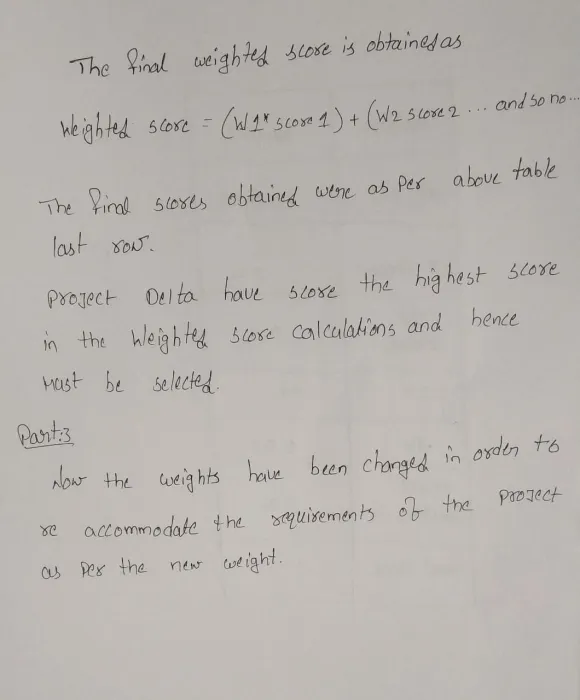 The final weighted score is obtained as
Weighted score = (W1* score 1) + (W2 score 2 ... and so no...
The final scores obtained were as per above table
last row.
Project Delta have score the highest score
in the Weighted score calculations and hence
must be selected.
Part:3
Now the weights have been changed in order to
re accommodate the requirements of the project
as per the new weight.